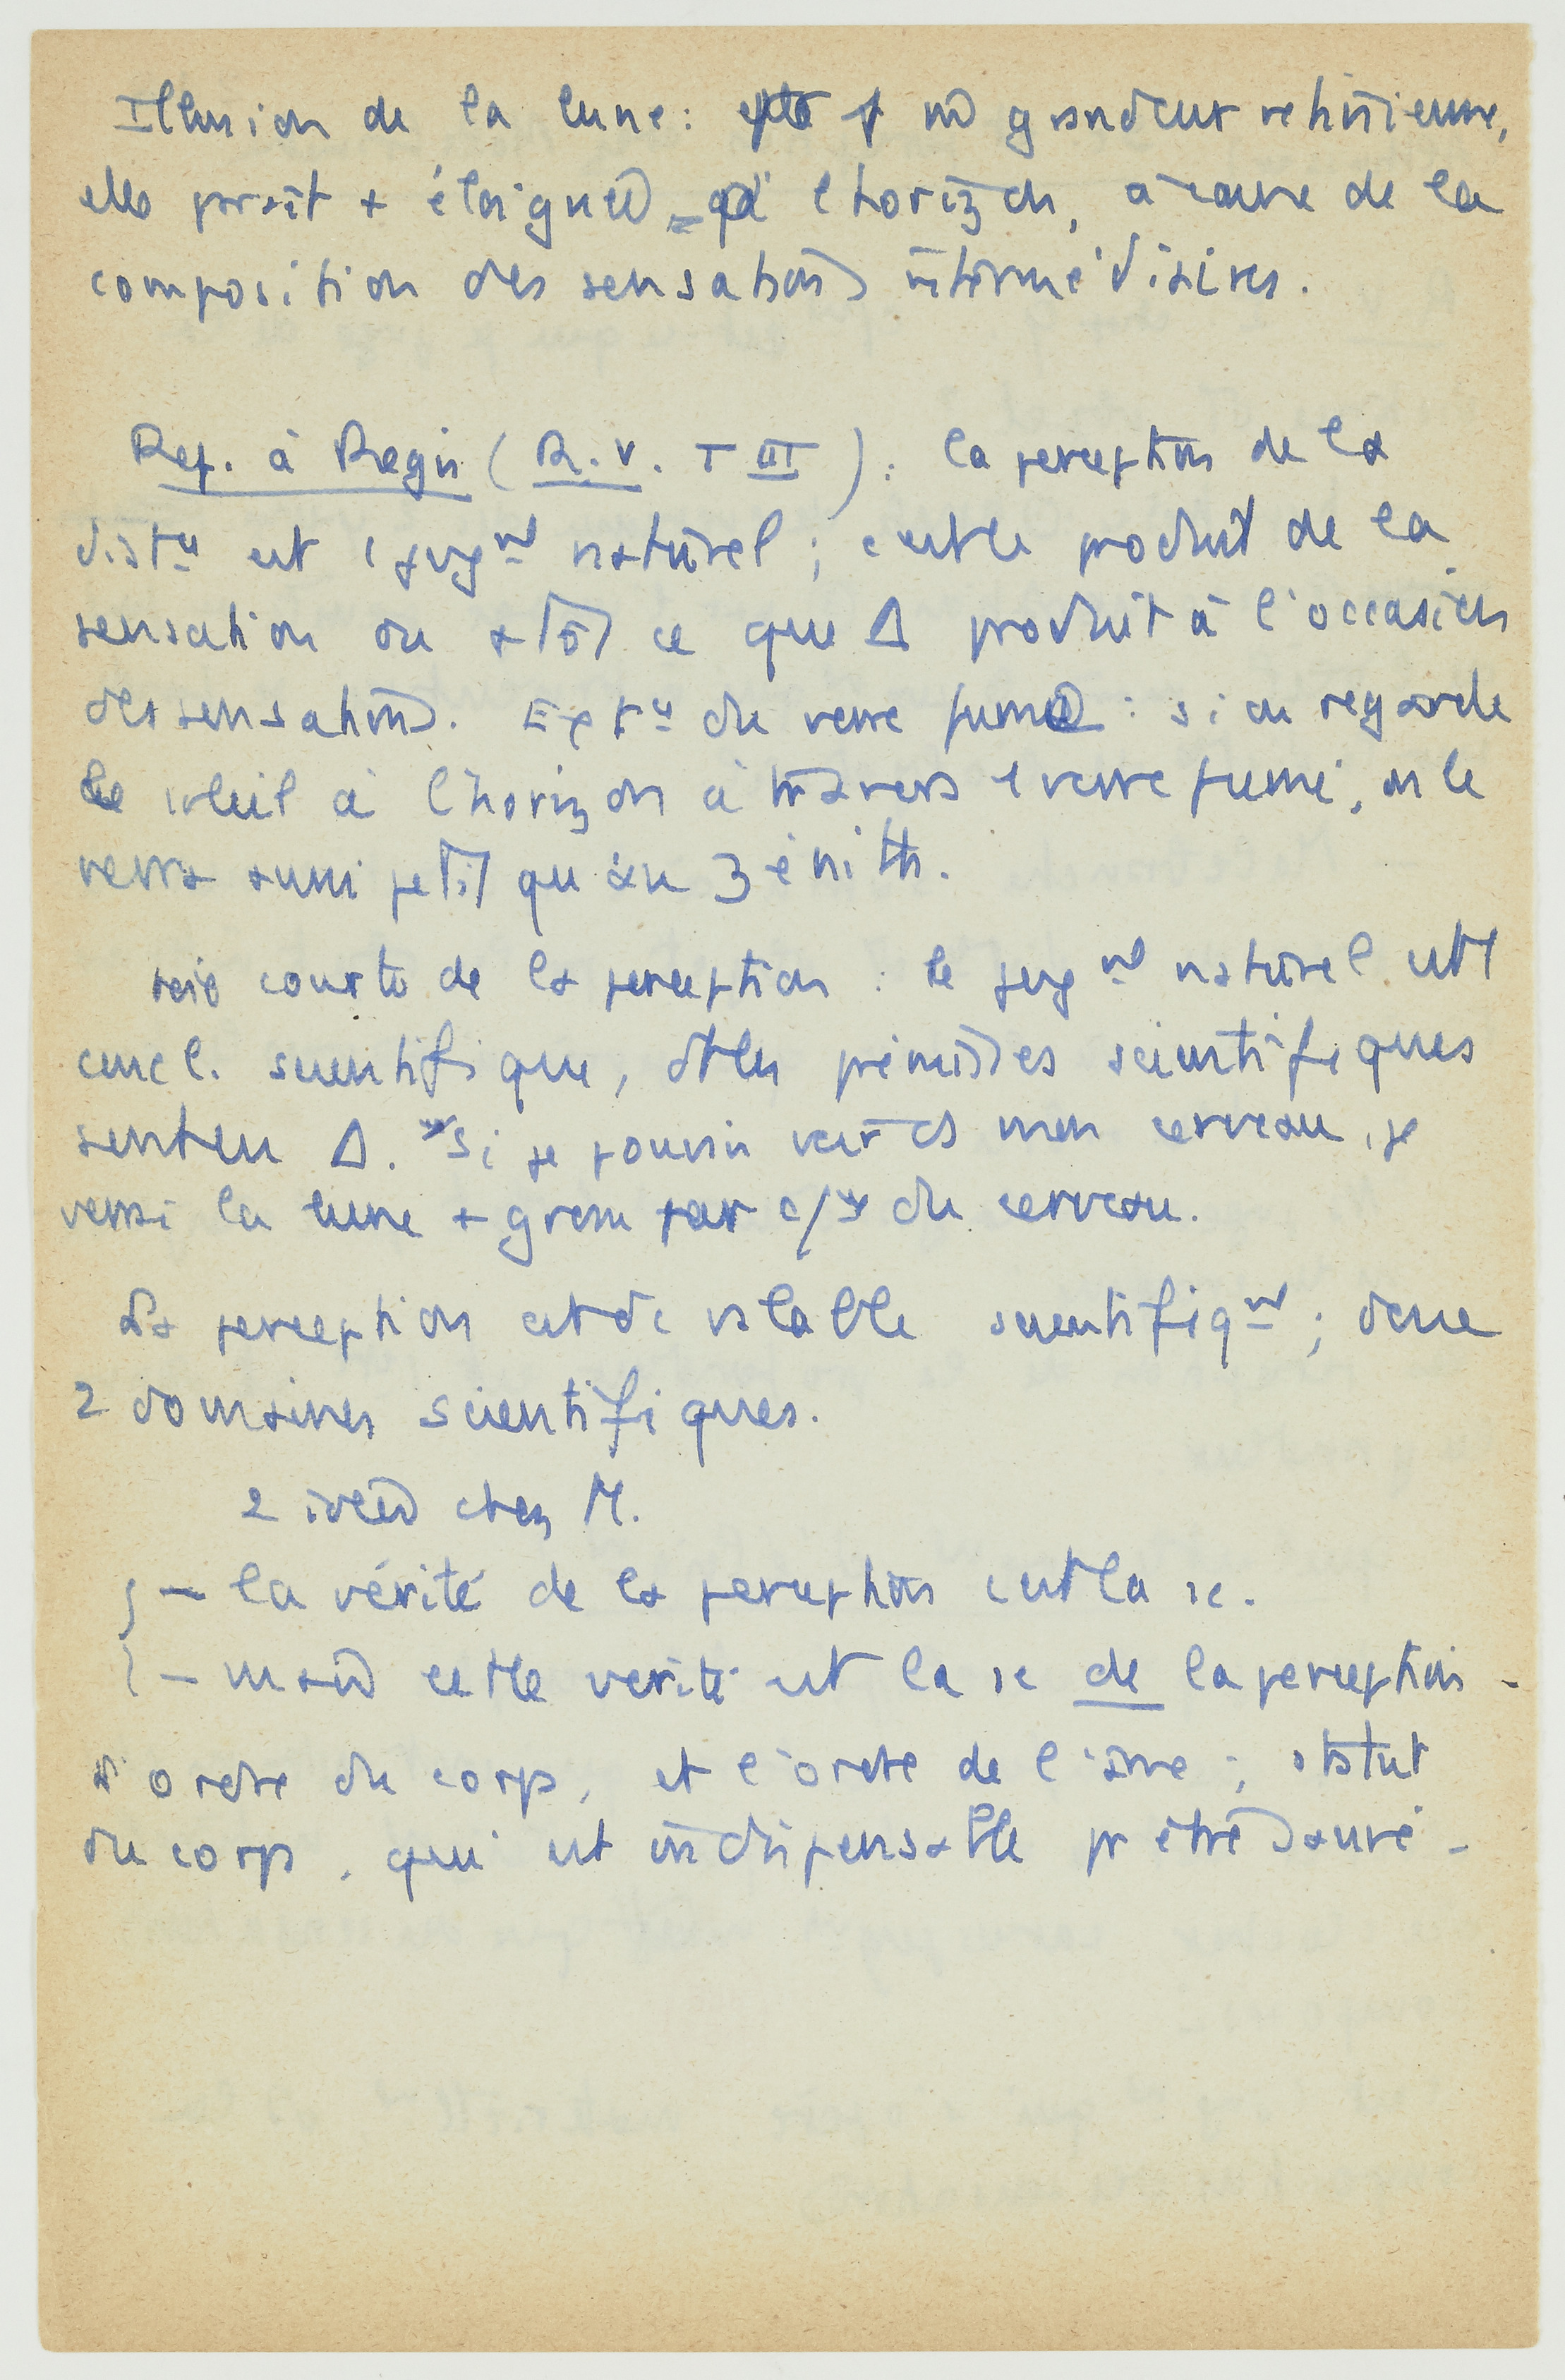 Illusion de la lune : pr m̂ grandeur rétinienne,
elle paraît + éloignée qd à l'horizon, à cause de la
composition des sensations intermédiaires.
Rep. à Regis (R.V. T III) : la perception de la
distce est 1 jugnt naturel ; c'est le produit de la
sensation ou + tôt ce que Δ produit à l'occasion
des sensations. Expce du verre fumé : si on regarde
le soleil à l'horizon à travers 1 verre fumé, on le
verra aussi petit qu'au zénith.
voie courte de la perception : le jugnt naturel est 1
concl. scientifique, dt les prémisses scientifiques
sont en Δ. Si je pouvais voir ds mon cerveau, je
verrai la lune + grosse par du cerveau.
La perception est dc valable scientifiqnt ; donc
2 domaines scientifiques.
2 idées chez M.
- la vérité de la perception c'est la sc.
- mais cette vérité est la sc de la perception.
L'ordre du corps, et l'ordre de l'âme ; statut
du corps, qui est indispensable pr être sauvé.